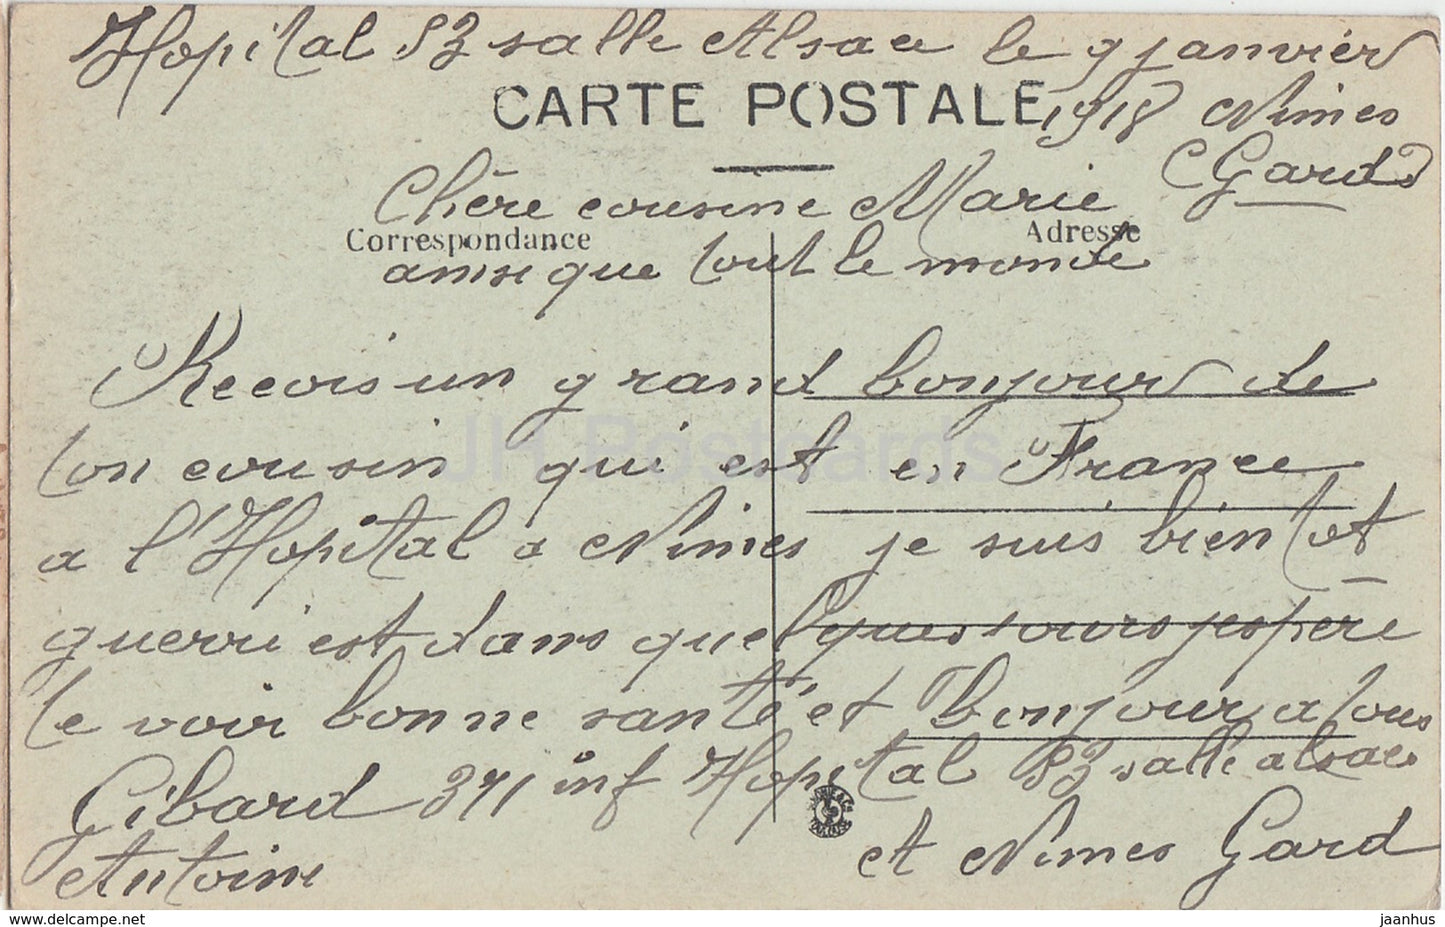 Hopital 53 salle Alsace le 9 janvier
CARTE POSTALE 1918 Nimes
(Gard)
Chère cousine Marie
Correspondance Adresse
ainsi que tout le monde
Recois un grand bonjour de
ton cousin qui est en France
a l'Hopital a Nimes je suis bientot
guerri est dans quelques jours jespère
te voir bonne santé et bonjour a tous
Gibard 371 inf Hopital 53 salle alsace
Antoine et Nimes Gard
JH Postcards
www.delcampe.net
jaanhus